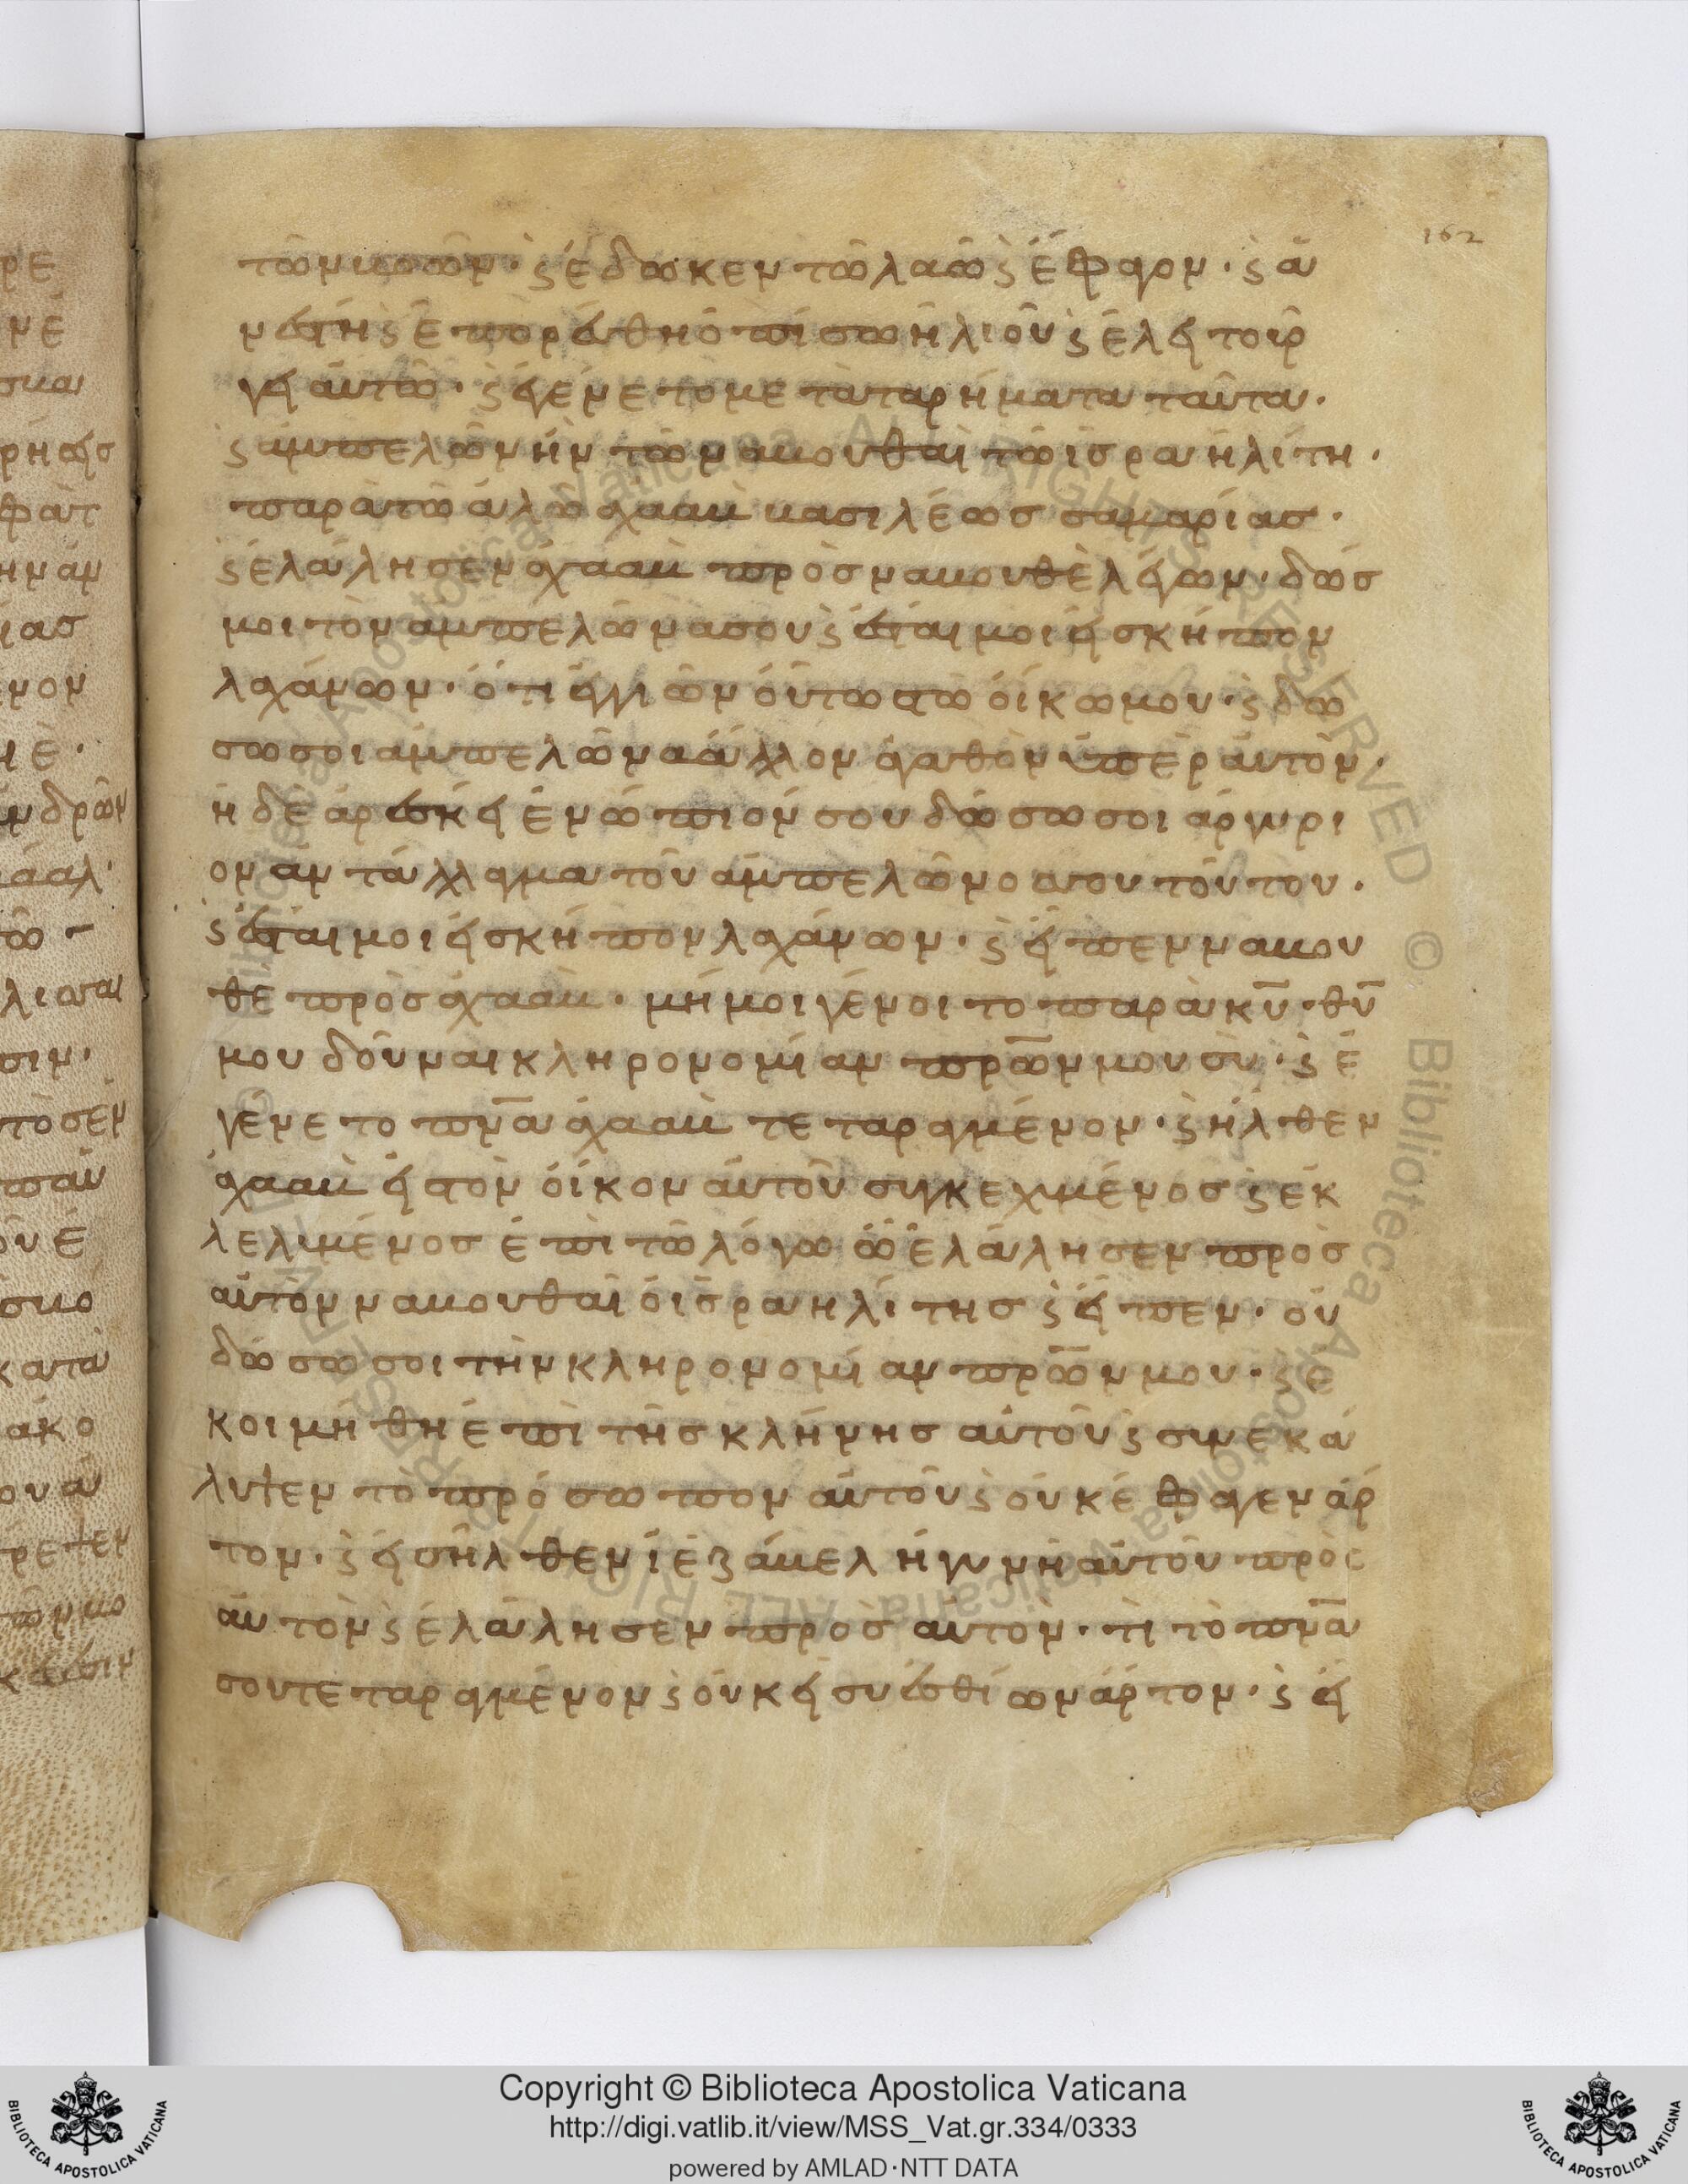 162
τῶν βοῶν· ϛ ἔδωκεν τῶ λαῶ ϛ ἔφαγον· ϛ ἀ
νέστη ϛ ἐπορεύθη ὀπίσω ἠλιοῦ ϛ ἐλειτούρ
γει αὐτῶ· ϛ ἐγένετο μετὰ τὰ ῥήματα ταῦτα·
ϛ ἀμπελὼν ἦν τῶ ναβουθαὶ τῶ ἰσραηλίτη·
παρὰ τῶ ἁλῶ ἀχαὰβ βασιλέως σαμαρίας·
ϛ ἐλάλησεν ἀχαὰβ πρὸς ναβουθὲ λέγων· δός
μοι τὸν ἀμπελῶνά σου ϛ ἔσται μοι εἰς κῆπον
λαχάνων· ὅτι ἐγγιῶν οὗτος τῶ οἴκω μου· ϛ δώ
σω σοι ἀμπελῶνα ἄλλον ἀγαθὸν ὑπὲρ αὐτὸν·
ἢ δὲ ἀρέσκει ἐνώπιόν σου δώσω σοι ἀργύρι
ον ἀντάλλαγμα τοῦ ἀμπελῶνος σου τούτου·
ϛ ἔσται μοι εἰς κῆπον λαχάνων· ϛ εἶπεν ναβου
θε πρὸς ἀχαάβ· μή μοι γένοιτο παρὰ κυ̅· θυ̅
μου δοῦναι κληρονομίαν πρω̅ν μου σὺ· ϛ ἐ
γένετο πνα̅ ἀχαὰβ τεταραγμένον· ϛ ἦλθεν
ἀχαὰβ εἰς τὸν οἶκον αὐτοῦ συγκεχυμένος ϛ ἐκ
λελυμένος ἐπὶ τῶ λόγω ὧ ἐλάλησεν πρὸς
αὐτὸν ναβουθαὶ ὁ ἰσραηλίτης ϛ εἶπεν· οὐ
δώσω σοι τὴν κληρονομίαν πρω̅ν μου· ϛ ἐ
κοιμήθη ἐπὶ τῆς κλήνης αὐτοῦ ϛ συνεκά
λυψεν τὸ πρόσωπον αὐτοῦ ϛ οὐκ ἔφαγεν ἄρ
τον· ϛ εἰσῆλθεν ἰεζάβελ ἡ γυνὴ αὐτοῦ πρὸς
αὐτὸν ϛ ἐλάλησεν πρὸς αὐτὸν· τί τὸ πνα̅
σου τεταραγμένον ϛ οὐκ εἶ σὺ ἐσθίων ἄρτον· ϛ εἶ
Copyright © Biblioteca Apostolica Vaticana
http://digi.vatlib.it/view/MSS_Vat.gr.334/0333
powered by AMLAD·NTT DATA
BIBLIOTECA APOSTOLICA VATICANA
BIBLIOTECA APOSTOLICA VATICANA